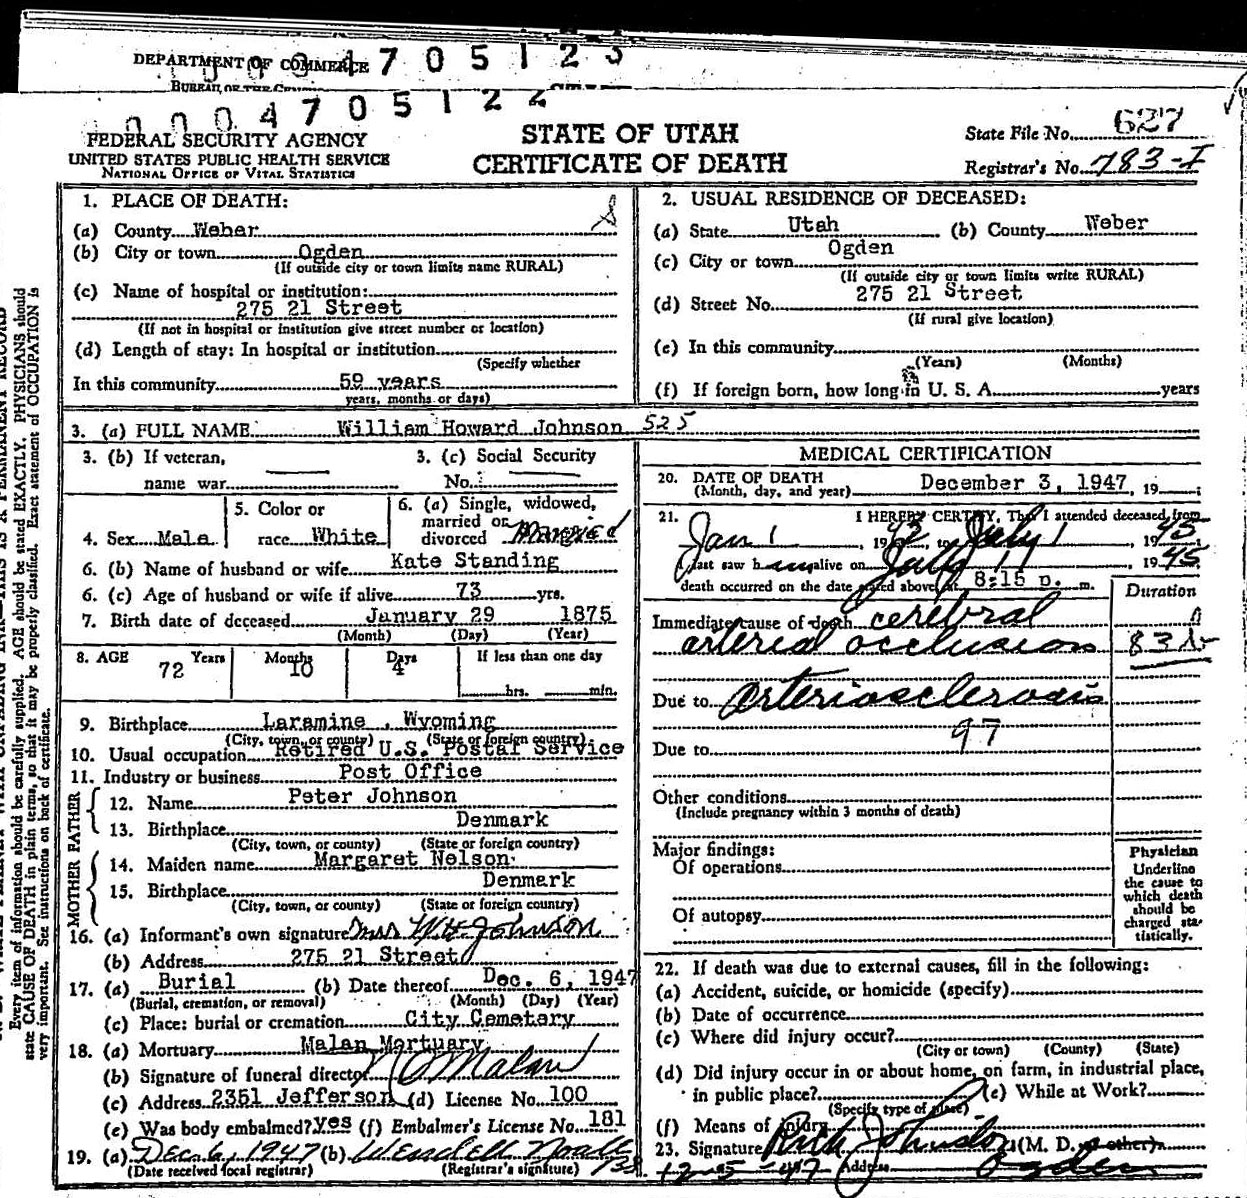 DEPARTMENT OF COMMERCE
4705123
BUREAU OF THE
0004705122
FEDERAL SECURITY AGENCY
UNITED STATES PUBLIC HEALTH SERVICE
NATIONAL OFFICE OF VITAL STATISTICS
STATE OF UTAH
CERTIFICATE OF DEATH
State File No. 627
Registrar's No. 783-I
1. PLACE OF DEATH:
(a) County Weber
(b) City or town Ogden
(If outside city or town limits name RURAL)
(c) Name of hospital or institution:
275 21 Street
(If not in hospital or institution give street number or location)
(d) Length of stay: In hospital or institution
(Specify whether
In this community 59 years
years, months or days)
2. USUAL RESIDENCE OF DECEASED:
(a) State Utah (b) County Weber
(c) City or town Ogden
(If outside city or town limits write RURAL)
(d) Street No. 275 21 Street
(If rural give location)
(e) In this community
(Years) (Months)
(f) If foreign born, how long in U. S. A. years
3. (a) FULL NAME William Howard Johnson 525
3. (b) If veteran, name war
3. (c) Social Security No.
4. Sex Male
5. Color or race White
6. (a) Single, widowed, married or divorced Married
6. (b) Name of husband or wife Kate Standing
6. (c) Age of husband or wife if alive 73 yrs.
7. Birth date of deceased January 29 1875
(Month) (Day) (Year)
8. AGE 72 Years Months 10 Days 4 If less than one day
hrs. min.
9. Birthplace Laramine , Wyoming
(City, town, or county) (State or foreign country)
10. Usual occupation Retired U.S. Postal Service
11. Industry or business Post Office
FATHER
12. Name Peter Johnson
13. Birthplace Denmark
(City, town, or county) (State or foreign country)
MOTHER
14. Maiden name Margaret Nelson
15. Birthplace Denmark
(City, town, or county) (State or foreign country)
16. (a) Informant's own signature Mrs W H Johnson
(b) Address 275 21 Street
17. (a) Burial (b) Date thereof Dec. 6, 1947
(Burial, cremation, or removal) (Month) (Day) (Year)
(c) Place: burial or cremation City Cemetary
18. (a) Mortuary Malan Mortuary
(b) Signature of funeral director Malan
(c) Address 2351 Jefferson (d) License No. 100
(e) Was body embalmed? yes (f) Embalmer's License No. 181
19. (a) Dec 6, 1947 (b) Wendell
(Date received local registrar) (Registrar's signature)
MEDICAL CERTIFICATION
20. DATE OF DEATH December 3, 1947, 19
(Month, day, and year)
21. I HEREBY CERTIFY, That I attended deceased from
Jan 1, 1943, to July 1, 1945;
I last saw him alive on July 1, 1945
death occurred on the date stated above at 8:15 p. m.
Duration
Immediate cause of death cerebral
arterial occlusion
Due to arteriosclerosis
97
Due to
Other conditions
(Include pregnancy within 3 months of death)
Major findings:
Of operations
Of autopsy
Physician
Underline
the cause to
which death
should be
charged sta-
tistically.
22. If death was due to external causes, fill in the following:
(a) Accident, suicide, or homicide (specify)
(b) Date of occurrence
(c) Where did injury occur?
(City or town) (County) (State)
(d) Did injury occur in or about home, on farm, in industrial place,
in public place? (e) While at Work?
(Specify type of place)
(f) Means of injury
23. Signature Rich Johnston (M. D. or other)
12-5-47 Address Ogden
Every item of information should be carefully supplied. AGE should be stated EXACTLY. PHYSICIANS should
state CAUSE OF DEATH in plain terms, so that it may be properly classified. Exact statement of OCCUPATION is
very important. See instructions on back of certificate.